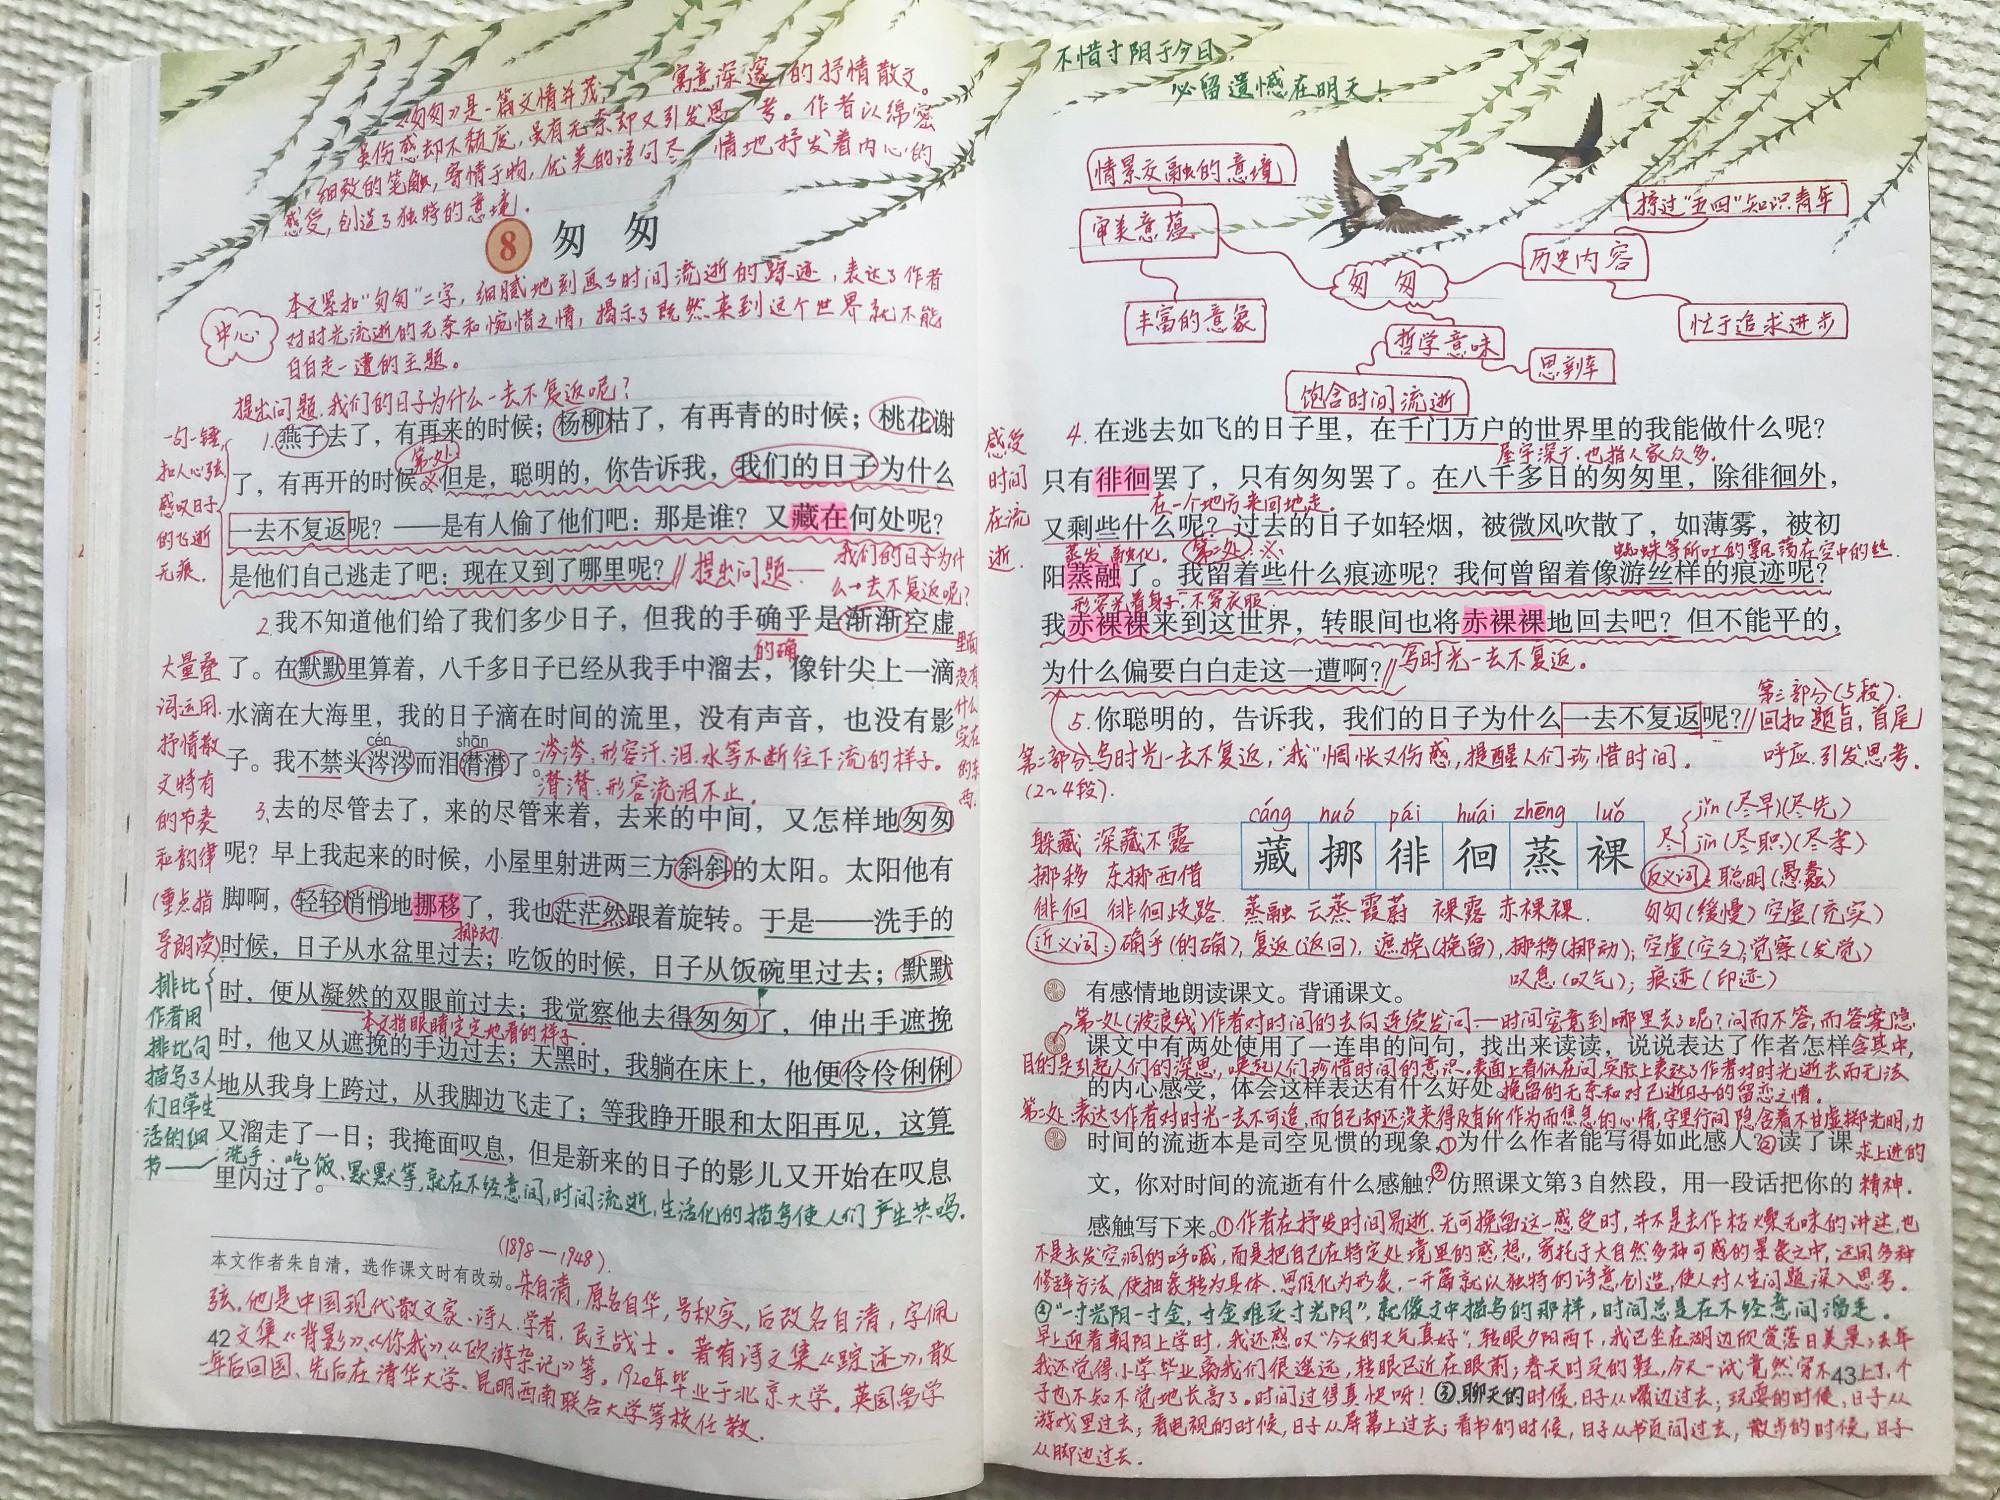 《匆匆》是一篇文情并茂, 寓意深邃的抒情散文。
虽伤感却不颓废,虽有无奈却又引发思考。作者以绵密
细致的笔触,寄情于物,优美的语句尽情地抒发着内心的
感受,创造了独特的意境.
8 匆匆
中心
本文紧扣"匆匆"二字,细腻地刻画了时间流逝的踪迹,表达了作者
对时光流逝的无奈和惋惜之情,揭示了既然来到这个世界就不能
白白走一遭的主题。
提出问题.我们的日子为什么一去不复返呢?
一句一锤,
扣人心弦
感叹日子
的飞逝
无痕.
1.燕子去了,有再来的时候;杨柳枯了,有再青的时候;桃花谢
第一处
了,有再开的时候。但是,聪明的,你告诉我,我们的日子为什么
一去不复返呢?——是有人偷了他们吧:那是谁?又藏在何处呢?
是他们自己逃走了吧:现在又到了哪里呢?∥提出问题——我们的日子为什
么一去不复返呢?
2.我不知道他们给了我们多少日子,但我的手确乎是渐渐空虚
的确
里面没有什么实在的东西.
大量叠
词运用.
抒情散
文特有
的节奏
和韵律
(重点指
导朗读)
了。在默默里算着,八千多日子已经从我手中溜去,像针尖上一滴
水滴在大海里,我的日子滴在时间的流里,没有声音,也没有影
cén shān
子。我不禁头涔涔而泪潸潸了。涔涔:形容汗、泪、水等不断往下流的样子。
潸潸:形容流泪不止.
3.去的尽管去了,来的尽管来着,去来的中间,又怎样地匆匆
呢?早上我起来的时候,小屋里射进两三方斜斜的太阳。太阳他有
脚啊,轻轻悄悄地挪移了,我也茫茫然跟着旋转。于是——洗手的
挪动
时候,日子从水盆里过去;吃饭的时候,日子从饭碗里过去;默默
时,便从凝然的双眼前过去;我觉察他去得匆匆了,伸出手遮挽
本文指眼睛定定地看的样子.
时,他又从遮挽的手边过去;天黑时,我躺在床上,他便伶伶俐俐
地从我身上跨过,从我脚边飞走了;等我睁开眼和太阳再见,这算
又溜走了一日;我掩面叹息,但是新来的日子的影儿又开始在叹息
里闪过了。
排比
作者用
排比句
描写了人
们日常生
活的细
节——洗手、吃饭、默默等,就在不经意间,时间流逝,生活化的描写使人们产生共鸣.
本文作者朱自清,选作课文时有改动。
(1898—1948).
朱自清,原名自华,号秋实,后改名自清,字佩
弦,他是中国现代散文家、诗人、学者、民主战士. 著有诗文集《踪迹》,散
42
文集《背影》、《你我》、《欧游杂记》等。1920年毕业于北京大学。英国留学
一年后回国、先后在清华大学、昆明西南联合大学等校任教.
不惜寸阴于今日,
必留遗憾在明天!
情景交融的意境
审美意蕴
丰富的意象
匆匆
掠过"五四"知识青年
历史内容
忙于追求进步
哲学意味
思辨率
饱含时间流逝
感受
时间
在流
逝.
4.在逃去如飞的日子里,在千门万户的世界里的我能做什么呢?
屋宇深广.也指人家众多.
只有徘徊罢了,只有匆匆罢了。在八千多日的匆匆里,除徘徊外,
在一个地方来回地走.
又剩些什么呢?过去的日子如轻烟,被微风吹散了,如薄雾,被初
蒸发融化. 第二处 蜘蛛等所吐的飘荡在空中的丝.
阳蒸融了。我留着些什么痕迹呢?我何曾留着像游丝样的痕迹呢?
形容光着身子.不穿衣服.
我赤裸裸来到这世界,转眼间也将赤裸裸地回去吧?但不能平的,
为什么偏要白白走这一遭啊?∥写时光一去不复返。
第三部分(5段).
回扣题旨,首尾
呼应.引发思考.
5.你聪明的,告诉我,我们的日子为什么一去不复返呢?
第二部分写时光一去不复返,"我"惆怅又伤感,提醒人们珍惜时间.
(2~4段).
cáng nuó pái huái zhēng luǒ
藏挪徘徊蒸裸
躲藏 深藏不露
挪移 东挪西借
尽 jǐn(尽早)(尽先)
jìn(尽职)(尽孝)
反义词:聪明(愚蠢)
徘徊 徘徊歧路. 蒸融 云蒸霞蔚 裸露 赤裸裸. 匆匆(缓慢) 空虚(充实)
近义词:确乎(的确),复返(返回),遮挽(挽留),挪移(挪动);空虚(空乏);觉察(发觉)
叹息(叹气);痕迹(印迹)
有感情地朗读课文。背诵课文。
第一处(波浪线)作者对时间的去向连续发问——时间究竟到哪里去了呢?问而不答,而答案隐
课文中有两处使用了一连串的问句,找出来读读,说说表达了作者怎样
含其中,
目的是引起人们的深思,唤起人们珍惜时间的意识.表面上看似在问,实际上表达了作者对时光逝去而无法
的内心感受,体会这样表达有什么好处。
挽留的无奈和对已逝日子的留恋之情.
第二处.表达了作者对时光一去不可追,而自己却还没来得及有所作为而焦急的心情,字里行间隐含着不甘虚掷光明,力
时间的流逝本是司空见惯的现象,①为什么作者能写得如此感人?②读了课
求上进的
文,你对时间的流逝有什么感触?③仿照课文第3自然段,用一段话把你的
精神.
感触写下来。①作者在抒发时间易逝.无可挽留这一感受时,并不是去作枯燥无味的讲述,也
不是去发空洞的呼喊,而是把自己在特定处境里的感想,寄托于大自然多种可感的景象之中,运用多种
修辞方法,使抽象转为具体.思维化为形象,一开篇就以独特的诗意创造,使人对人生问题深入思考.
②"一寸光阴一寸金,寸金难买寸光阴",就像文中描写的那样,时间总是在不经意间溜走.
早上迎着朝阳上学时,我还感叹"今天的天气真好",转眼夕阳西下,我已坐在湖边欣赏落日美景;去年
我还觉得小学毕业离我们很遥远,转眼已近在眼前;春天时买的鞋,今天一试竟然穿不上了,个
43
子也不知不觉地长高了.时间过得真快呀!③聊天的时候,日子从嘴边过去;玩耍的时候,日子从
游戏里过去;看电视的时候,日子从屏幕上过去;看书的时候,日子从书页间过去,散步的时候,日子
从脚边过去.